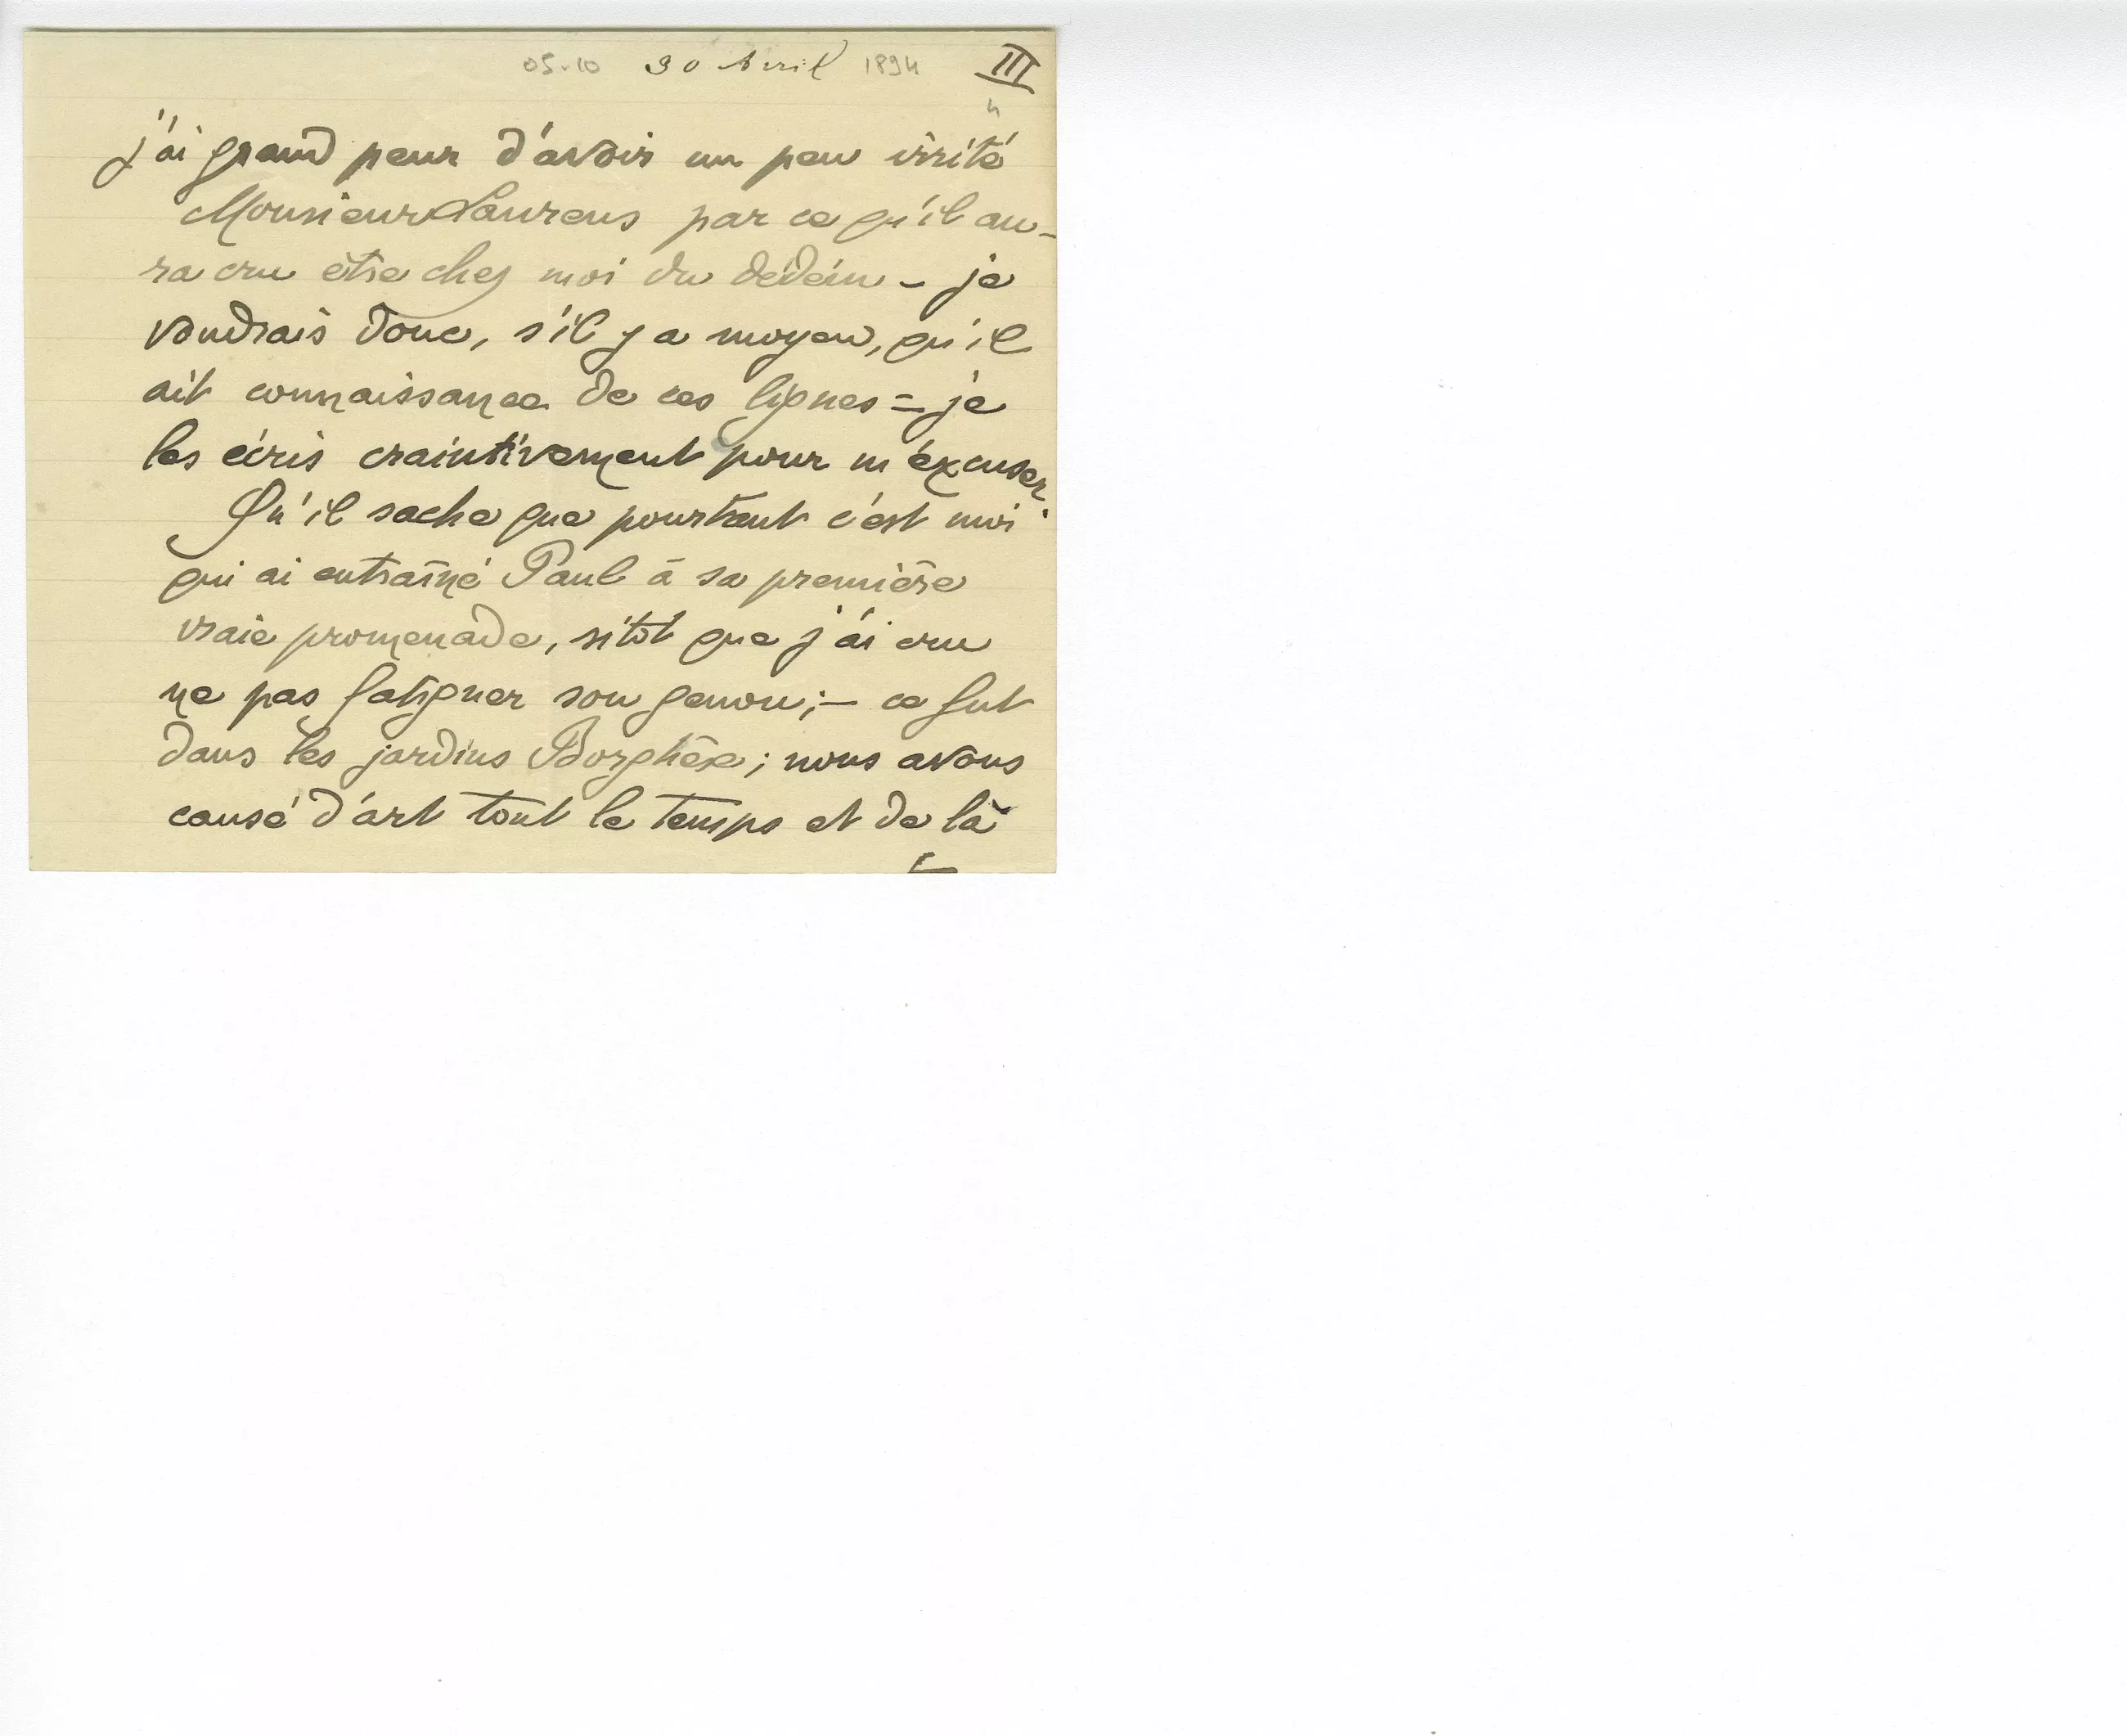 05-10 30 Avril 1894 III
4
j'ai grand peur d'avoir un peu irrité
Monsieur Laurens par ce qu'il au-
ra cru être chez moi du dédain - je
voudrais donc, s'il y a moyen, qu'il
ait connaissance de ces lignes = je
les écris craintivement pour m'excuser.
Qu'il sache que pourtant c'est moi
qui ai entraîné Paul à sa première
vraie promenade, sitôt que j'ai cru
ne pas fatiguer son genou ;- ce fut
dans les jardins Borghèse ; nous avons
causé d'art tout le temps et de là